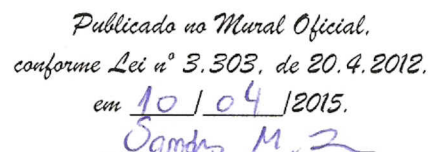 Publicado no Mural Oficial,
conforme Lei nº 3.303, de 20.4.2012.
em 10 / 04 /2015.
Sandra M.